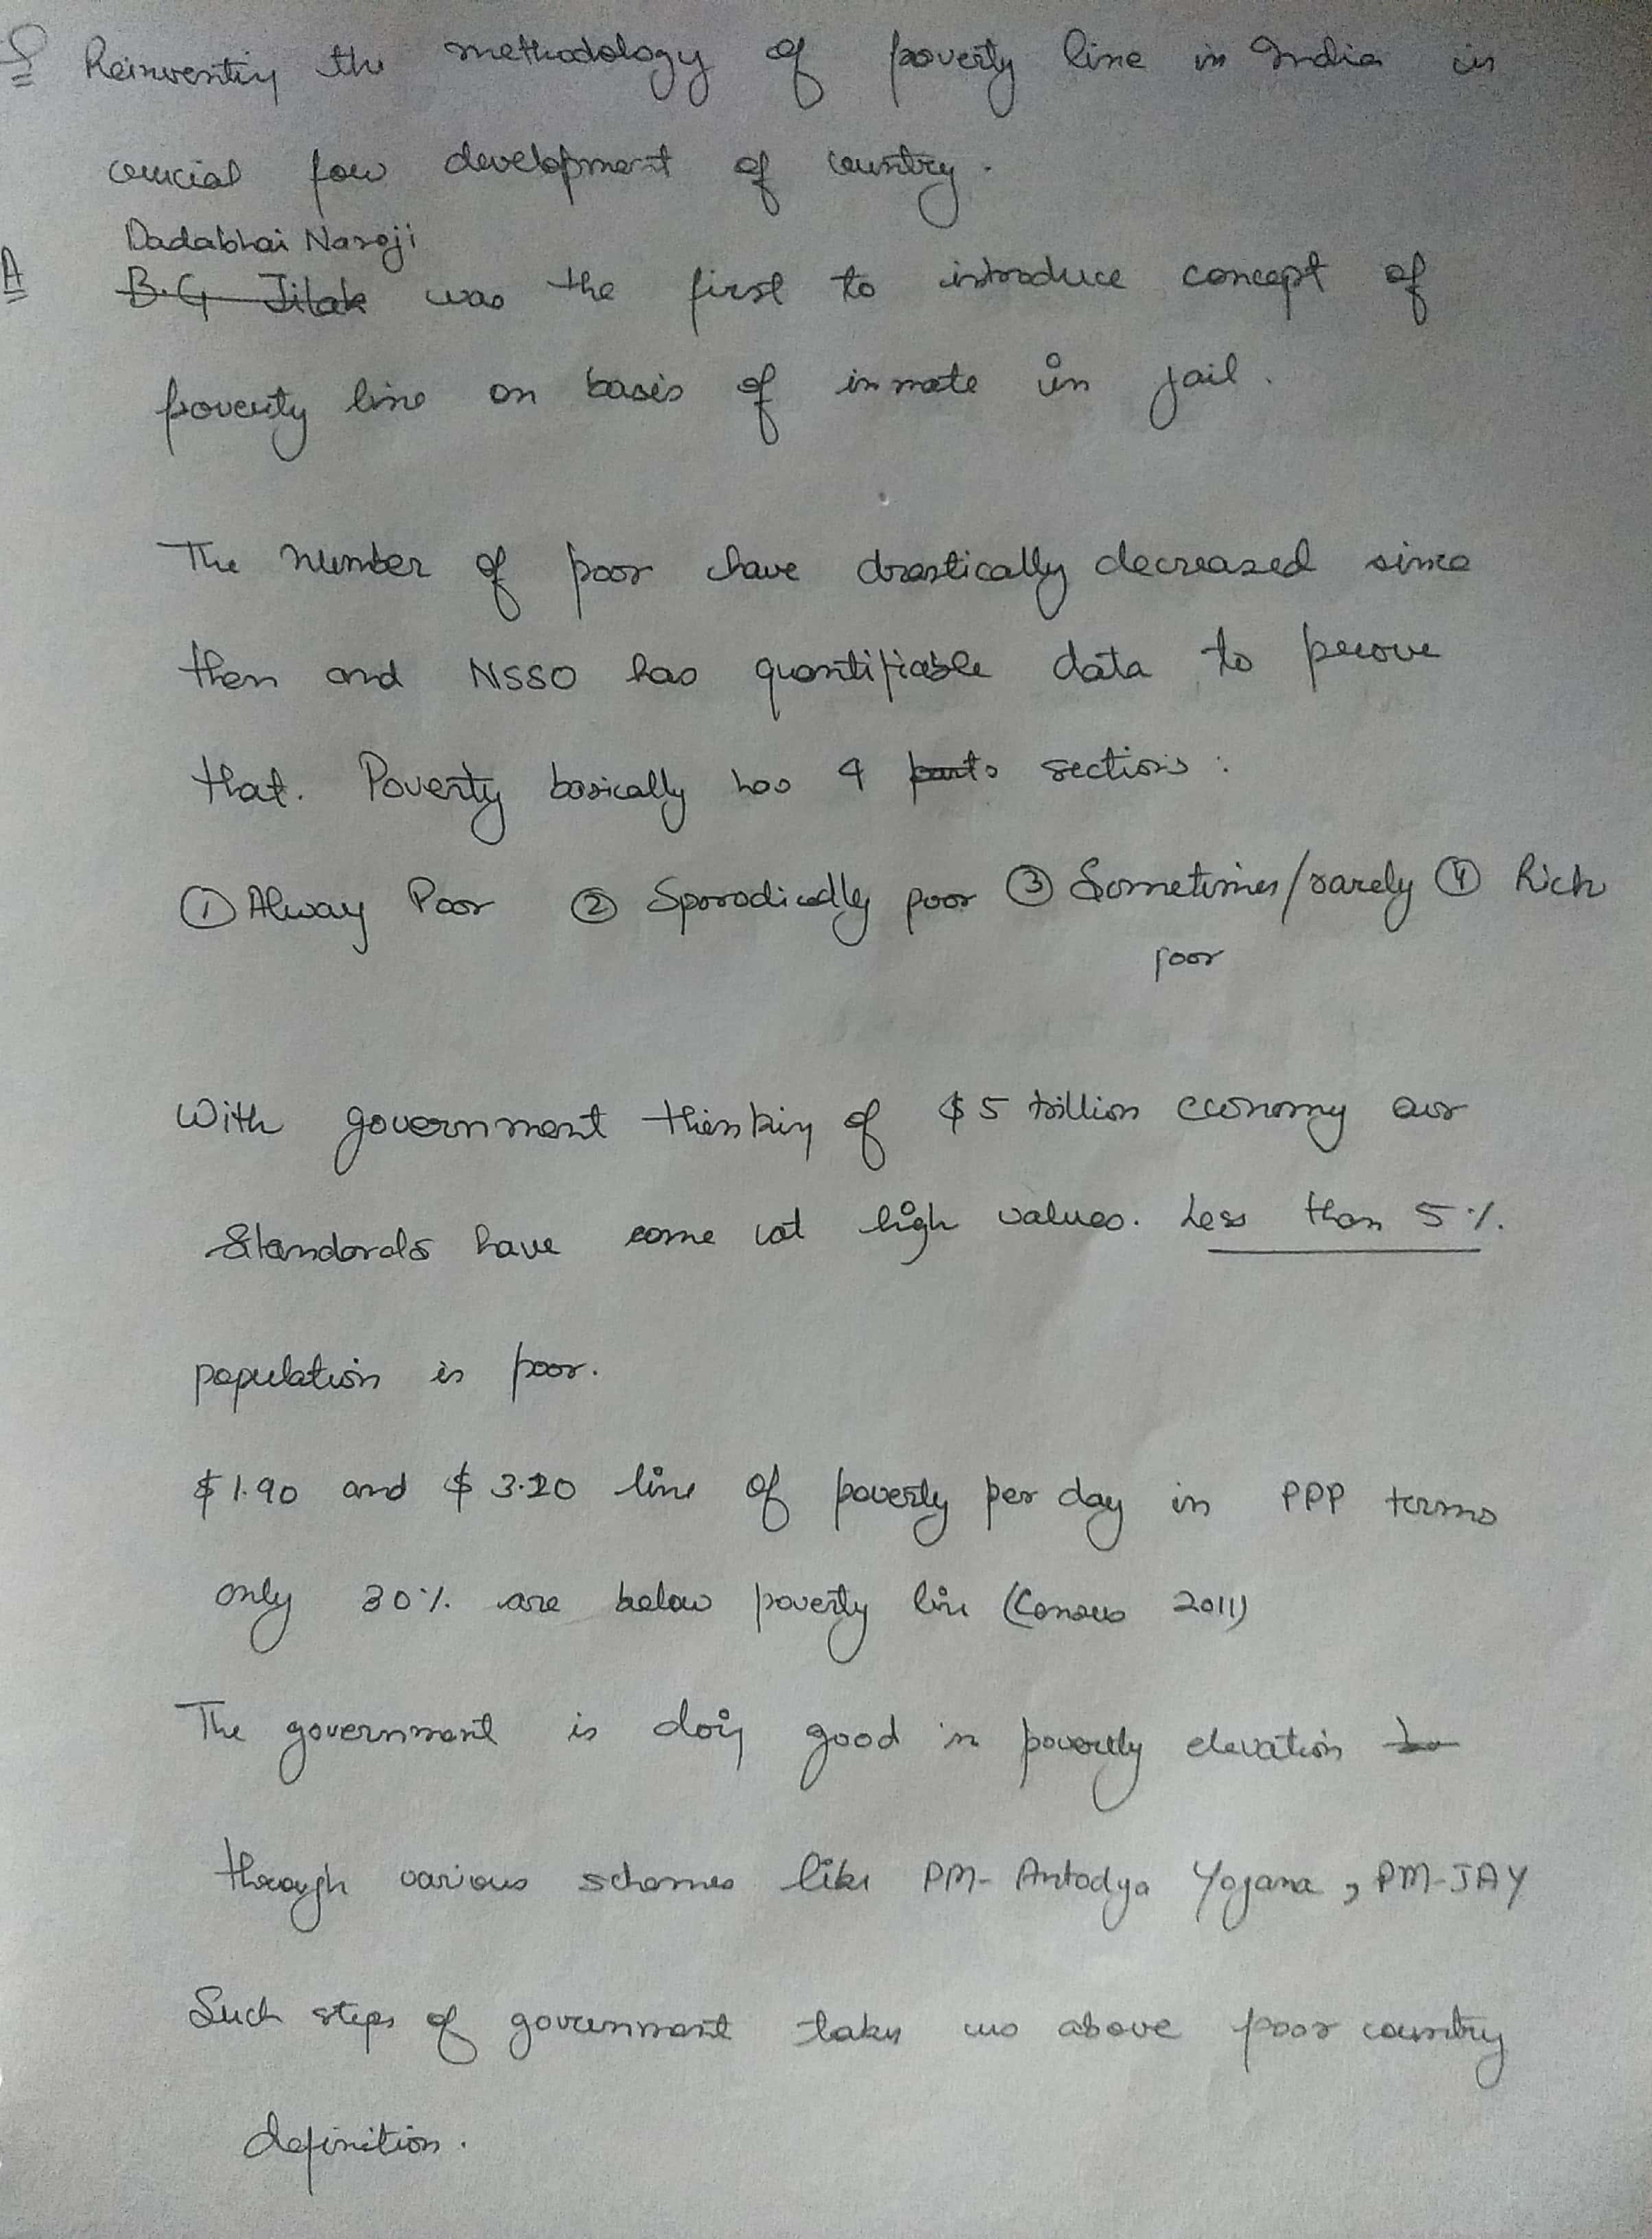 Q Reinventing the methodology of poverty line in India is
crucial for development of country.
Dadabhai Naroji
A B.G Tilak was the first to introduce concept of
poverty line on basis of inmate in jail.
The number of poor have drastically decreased since
then and NSSO has quantifiable data to prove
that. Poverty basically has 4 parts sections :
① Alway Poor ② Sporadically poor ③ Sometimes/rarely ④ Rich
poor
With government thinking of $5 trillion economy our
standards have come at high values. Less than 5%
population is poor.
$1.90 and $3.20 line of poverty per day in PPP terms
only 30% are below poverty line (Census 2011)
The government is doing good in poverty elevation
through various schemes like PM-Antodya Yojana, PM-JAY
Such steps of government takes us above poor country
definition.